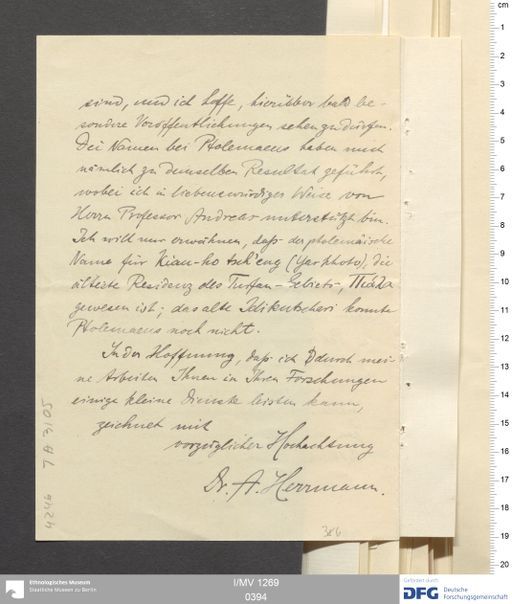 sind, und ich hoffe, hierüber bald be-
sondere Veröffentlichungen sehen zu dürfen.
Die Namen bei Ptolemaeus haben mich
nämlich zu demselben Resultat geführt,
wobei ich in liebenswürdiger Weise von
Herrn Professor Andreas unterstützt bin.
Ich will nur erwähnen, daß der ptolemäische
Name für Kiau-ho tsch'eng (Yar khoto), die
älteste Residenz des Turfan-Gebiets,
gewesen ist; das alte Idikutschari kannte
Ptolemaeus noch nicht.
In der Hoffnung, daß ich durch mei-
ne Arbeiten Ihnen in Ihren Forschungen
einige kleine Dienste leisten kann,
zeichnet mit
vorzüglicher Hochachtung
Dr. A. Herrmann.
386
cm
1
2
3
4
5
6
7
8
9
10
11
12
13
14
15
16
17
18
19
20
Ethnologisches Museum
Staatliche Museen zu Berlin
I/MV 1269
0394
Gefördert durch
DFG Deutsche
Forschungsgemeinschaft